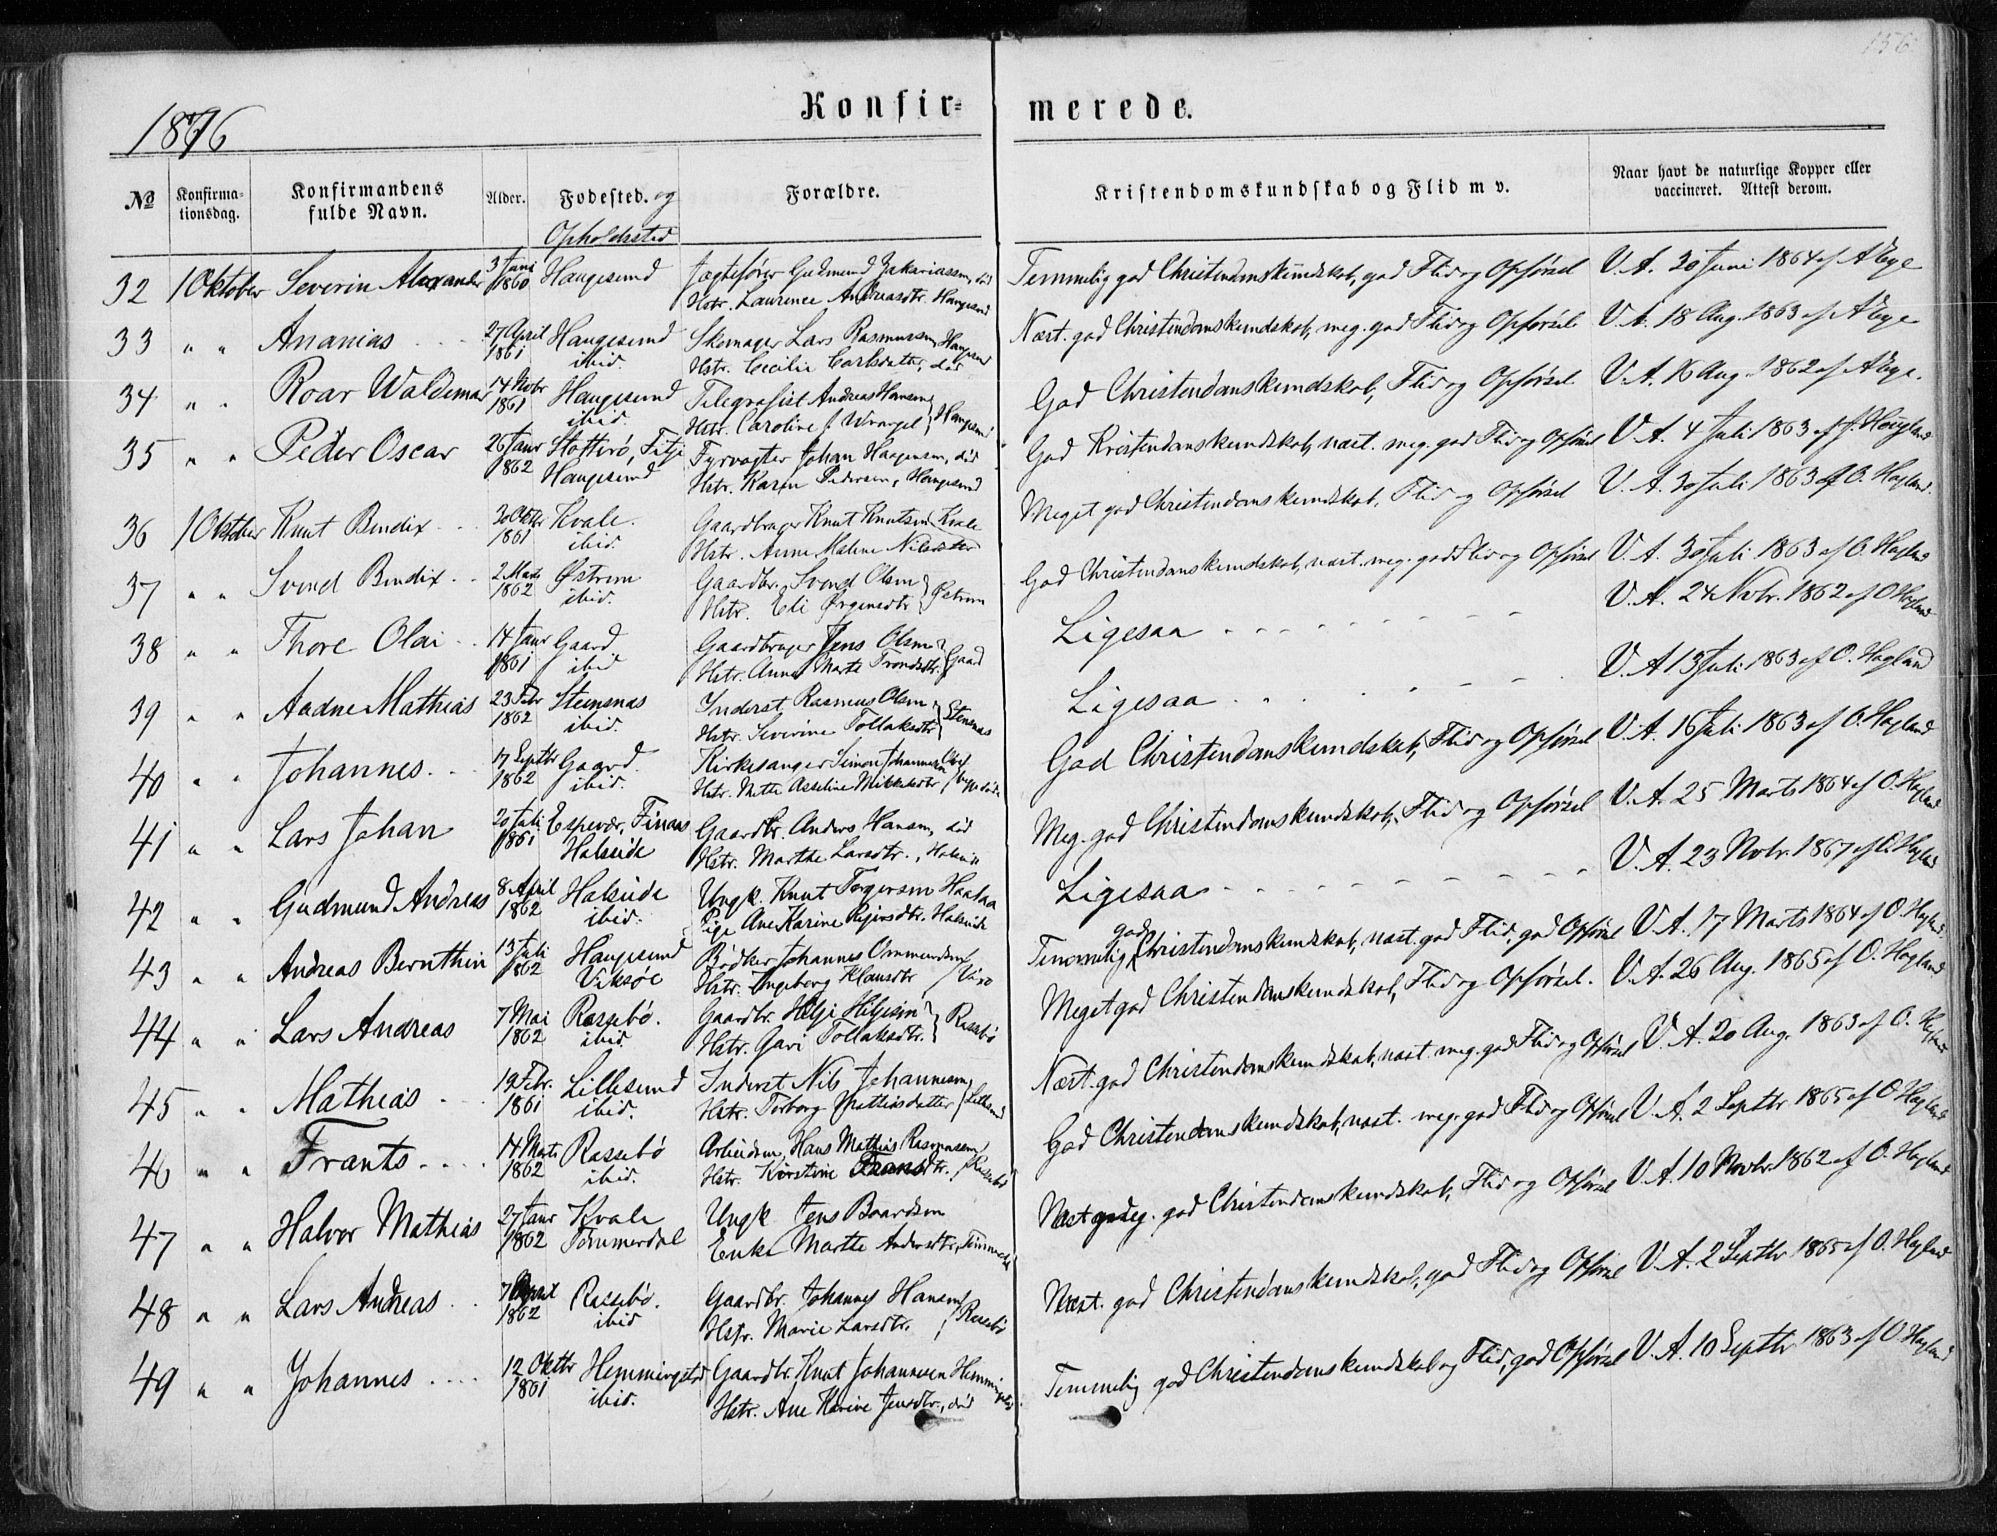 156
Konfirmerede.
1876
No
Konfirmationsdag.
Konfirmandens fulde Navn.
Alder.
Fødested. og Opholdssted
Forældre.
Kristendomskundskab og Flid m v.
Naar havt de naturlige Kopper eller vaccineret. Attest derom.
32 1 Oktober Severin Alexander 3 Juni 1860 Haugesund Jagtefører Gudmund Zakariassen, død Hstr. Laurence Andreasdtr. Haugesund Temmelig god Christendomskundskab, god Flid og Opførsel V. A. 30 Juni 1864 af
33 " " Ananias 27 April 1861 Haugesund ibid. Skomager Lars Rasmussen Haugesund Hstr. Cecilie Carlsdatter, død Næst. god Christendomskundskab, meg. god Flid og Opførsel V. A. 18 Aug. 1863 af
34 " " Roar Waldemar 14 Novbr 1861 Haugesund ibid. Telegrafist Andreas Hansen Hstr. Caroline f. Haugesund God Christendomskundskab, Flid og Opførsel V. A. 16 Aug. 1862 af
35 " " Peder Oscar 26 Janr 1862 Fitje Haugesund Fyrvogter Johan Haagensen, død Hstr. Karen Pedersen, Haugesund God Kristendomskundskab, næst. meg. god Flid og Opførsel V. A. 4 Juli 1863 af
36 1 Oktober Knut Bendix 20 Oktbr 1861 Kvale. ibid. Gaardbruger Knut Knutsen Kvale Hstr. Anne Malene Nilsdatter Meget god Christendomskundskab, Flid og Opførsel V. A. 30 Juli 1863 af O. Hagland
37 " " Svend Bendix 2 Marts 1862 Østrem ibid. Gaardbr. Svend Olsen Hstr. Eli Ørgensdtr Østrem God Christendomskundskab, næst. meg. god Flid og Opførsel V. A. 30 Juli 1863 af O. Hagland
38 " " Thore Olai 14 Janr 1861 Gaard ibid Gaardbruger Jens Olsen Hstr. Anne Marte Trondsdtr. Gaard Ligesaa V. A. 24 Novbr. 1862 af O Hagland
39 " " Aadne Mathias 23 Febr 1862 Stensnæs ibid. Inderst Rasmus Olsen Hstr. Severine Tollaksdtr Stensnæs Ligesaa V. A 13 Juli 1863 af O. Hagland
40 " " Johannes 17 Septbr 1862 Gaard. ibid. Kirkesanger Simon Johannesen Hstr. Mette Asseline Mikkelsdtr God Christendomskundskab, Flid og Opførsel V. A. 16 Juli 1863 af O. Hagland
41 " " Lars Johan 20 Juli 1861 Espevær, Finnås Halseide Gaardbr. Anders Hansen, død Hstr. Marthe Larsdtr., Halseide Meg. god Christendomskundskab, Flid og Opførsel V. A. 25 Marts 1864 af O. Hagland
42 " " Gudmund Andreas 8 April 1862 Halseide ibid. Ungk. Knut Torgersen Pige Ane Karine Halseide Ligesaa V. A. 23 Novbr. 1867 af O. Hagland
43 " " Andreas Bernthin 13 Juli 1862 Haugesund Viksøe Bødker Johannes Ommundsen Hstr. Ingeborg Klausdtr Temmelig god Christendomskundskab, næst. god Flid, god Opførsel V. A. 17 Marts 1864 af O. Hagland.
44 " " Lars Andreas 7 Mai 1862 Rossebø. ibid. Gaardbr. Helje Heljesen Hstr. Guri Tollaksdtr. Rossebø Meget god Christendomskundskab, Flid og Opførsel. V. A. 26 Aug. 1865 af O. Hagland
45 " " Mathias 19 Febr. 1861 Lillesund ibid. Inderst Nils Johannesen Hstr. Torborg Mathiasdatter Lillesund Næst. god Christendomskundskab, næst. meg. god Flid og Opførsel V. A. 20 Aug. 1863 af O. Hagland
46 " " Frants 14 Marts 1862 Rossebø ibid. Arbeidsm. Hans Mathias Rasmussen Hstr. Kirstine Fransdtr. Rossebø God Christendomskundskab, næst. meg. god Flid og Opførsel V. A. 2 Septbr 1865 af O Hagland
47 " " Halvor Mathias 27 Janr 1862 Kvale Tømmerdal Ungk Jens Baardsen Enke Marthe Andersdtr, Tømmerdal Næst meg. god Christendomskundskab, Flid og Opførsel V. A. 10 Novbr 1862 af O. Hagland
48 " " Lars Andreas 7 April 1862 Rossebø. ibid Gaardbr. Johannes Hansen Hstr. Marie Larsdtr. Rossebø Næst. god Christendomskundskab, god Flid og Opførsel V. A. 2 Septbr 1865 af O. Hagland
49 " " Johannes 12 Oktbr 1861 Hemmingstad ibid. Gaardbr. Knut Johannesen Hemmingstad Hstr. Ane Karine Jensdtr., død Temmelig god Christendomskundskab og Flid, god Opførsel V. A. 10 Septbr 1863 af O. Hagland